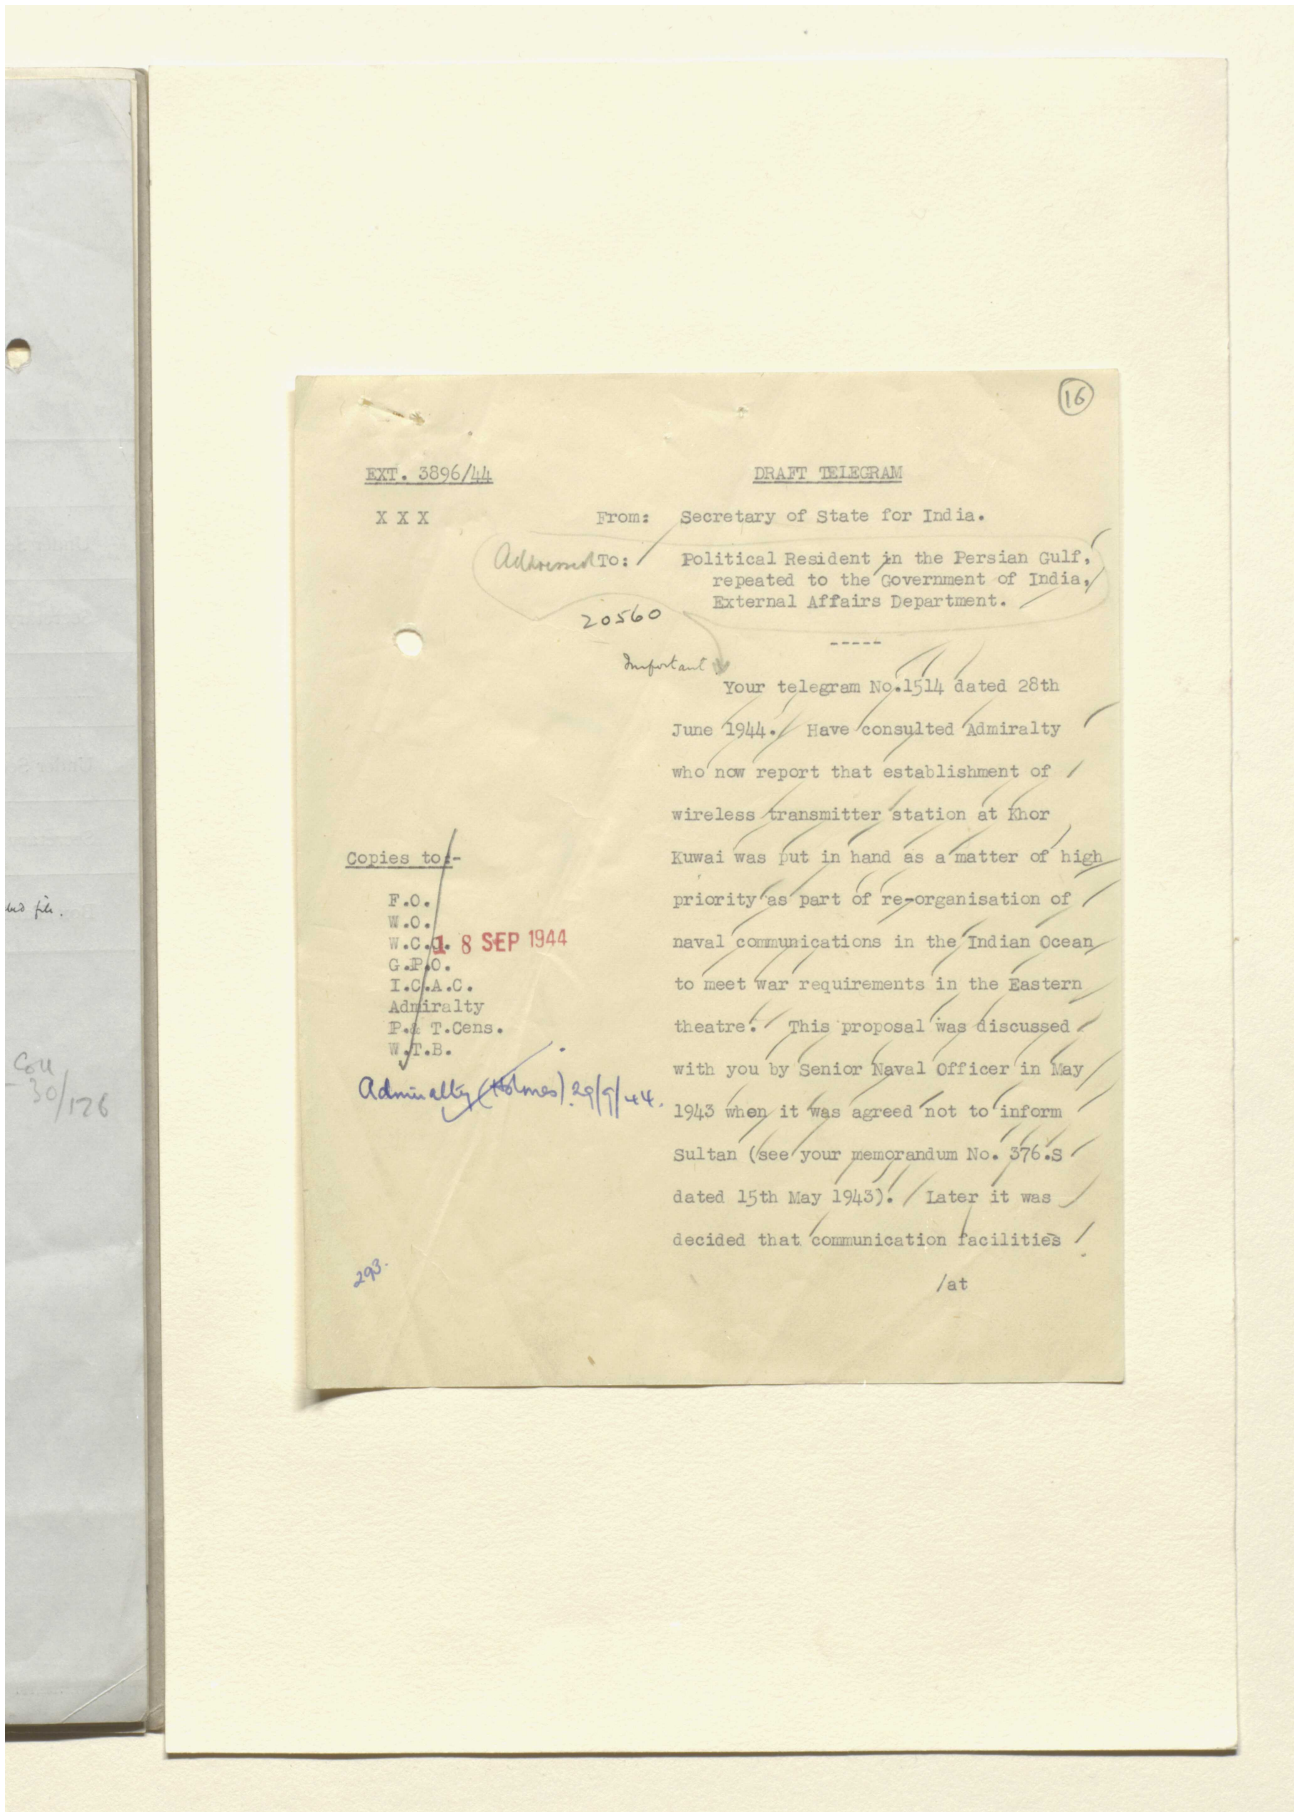 16
EXT. 3896/44
DRAFT TELEGRAM
X X X
From: Secretary of State for India.
Addressed To: Political Resident in the Persian Gulf,
repeated to the Government of India,
External Affairs Department.
20560
-----
Important
Your telegram No.1514 dated 28th
June 1944. Have consulted Admiralty
who now report that establishment of
wireless transmitter station at Khor
Kuwai was put in hand as a matter of high
priority as part of re-organisation of
naval communications in the Indian Ocean
to meet war requirements in the Eastern
theatre. This proposal was discussed
with you by Senior Naval Officer in May
1943 when it was agreed not to inform
Sultan (see your memorandum No. 376.S
dated 15th May 1943). Later it was
decided that communication facilities
/at
Copies to:-
F.O.
W.O.
W.C.O.
18 SEP 1944
G.P.O.
I.C.A.C.
Admiralty
P.& T.Cens.
W.T.B.
Admiralty (Holmes). 29/9/44.
293.
file.
Coll
30/126